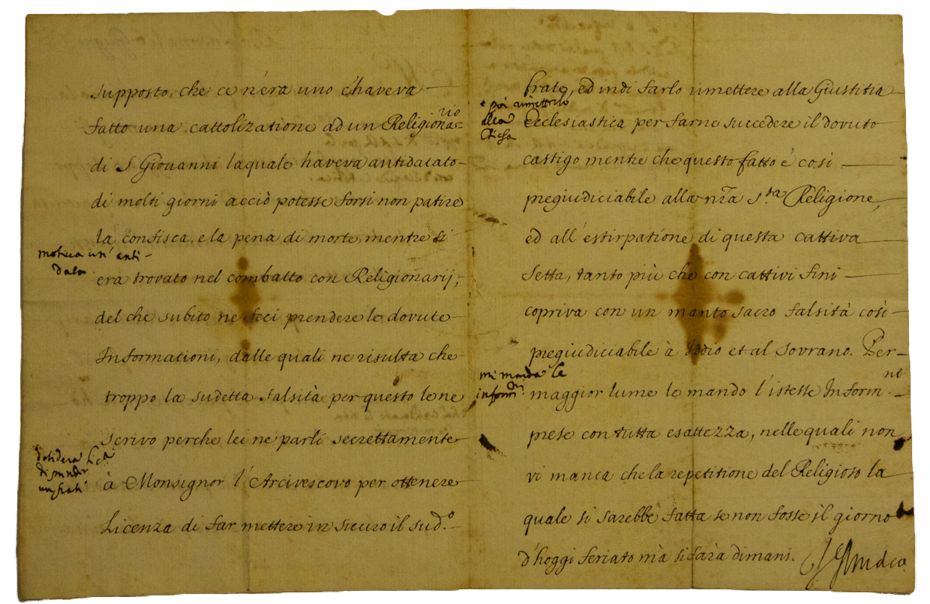 supposto, che ce n'era uno c'haveva
fatto una cattolizatione ad un Religionario
di S. Giovanni la quale haveva antidatato
di molti giorni acciò potesse forsi non patire
la confisca, e la pena di morte, mentre si
motiva un' anti-
data
era trovato nel combatto con Religionarij;
del che subito ne feci prendere le dovute
Informationi, dalle quali ne risulta che
troppo la sudetta falsità per questo le ne
scrivo perche lei ne parli secrettamente
desidera
di
à Monsignor l'Arcivescovo per ottenere
Licenza di far mettere in sicuro il sud.º
frate, ed indi farlo rimettere alla Giustitia
e poi rimetterlo
alla
Chiesa
Ecclesiastica per farne succedere il dovuto
castigo mentre che questo fatto è così
pregiudiciabile alla nr̃a S.ta Religione,
ed all'estirpatione di questa cattiva
setta, tanto più che con cattivi fini
copriva con un manto sacro falsità così
pregiudiciabile à Iddio et al Sovrano. Per
mi manda le
inform.ni
maggior lume le mando l'istesse Inform.ni
prese con tutta esattezza, nelle quali non
vi manca che la repetitione del Religioso la
quale si sarebbe fatta se non fosse il giorno
d'hoggi feriato mà si farà dimani.